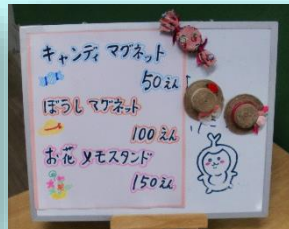 キャンディ マグネット
50えん
ぼうし マグネット
100えん
お花 メモスタンド
150えん